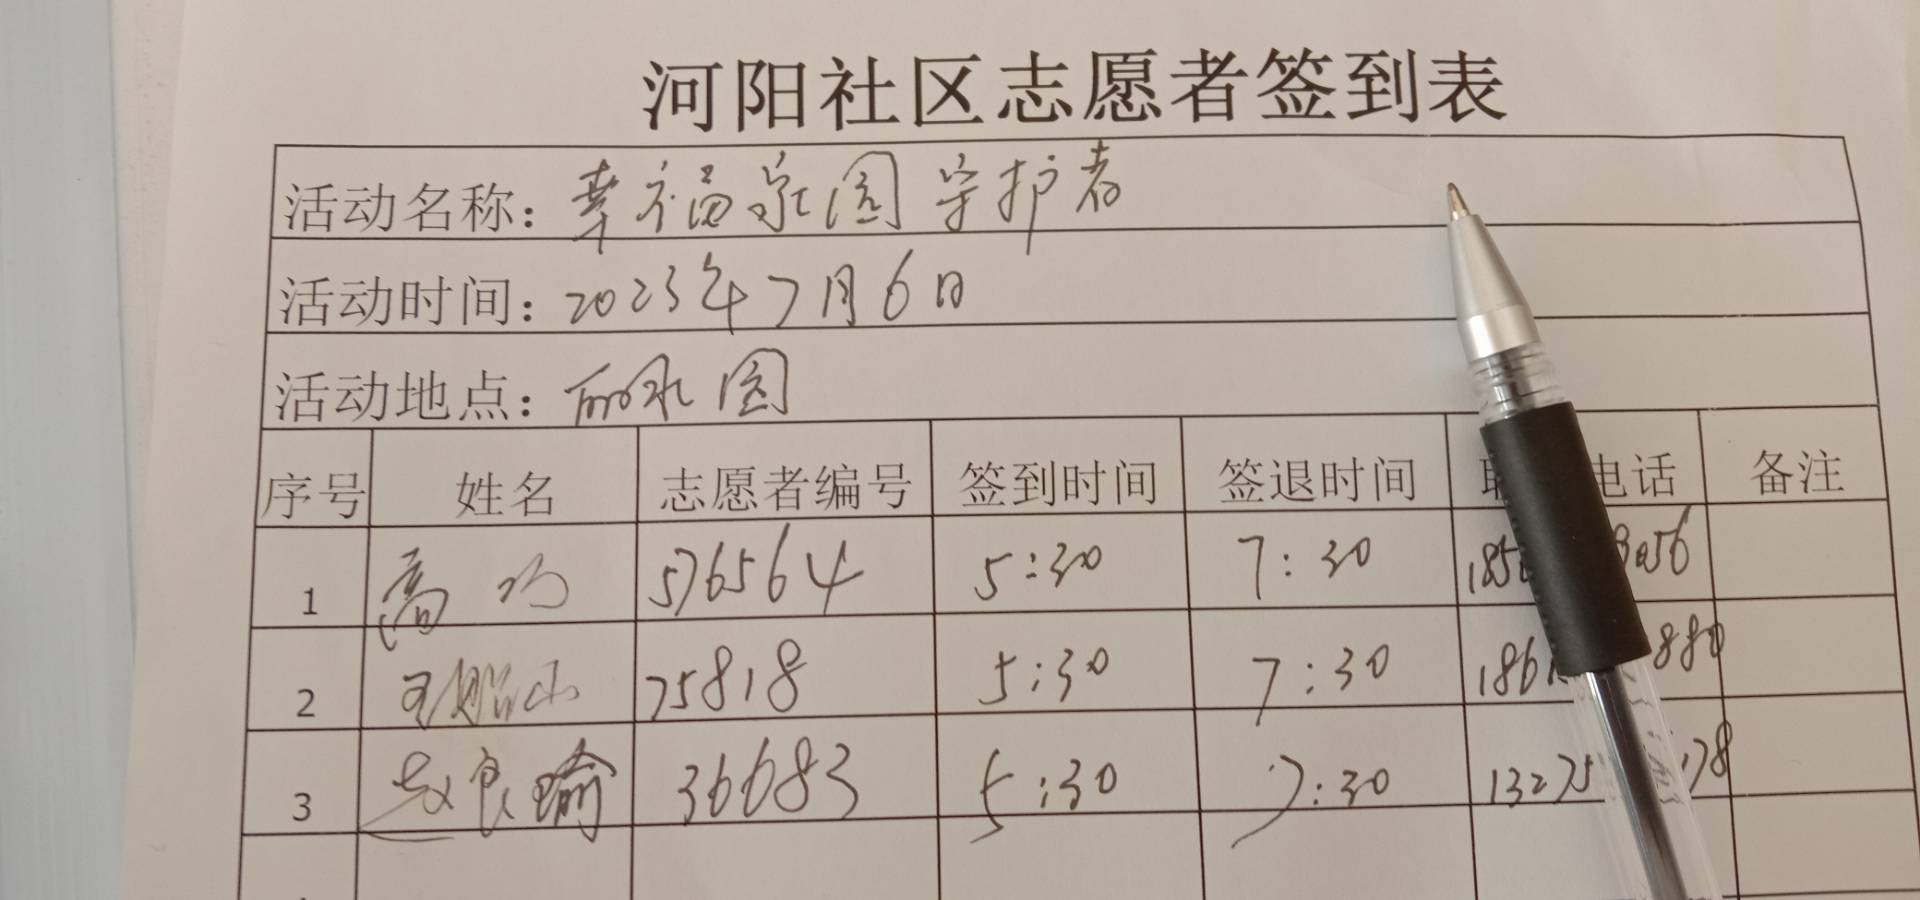 河阳社区志愿者签到表
活动名称：幸福家园守护者
活动时间：2023年7月6日
活动地点：丽水园
序号 姓名 志愿者编号 签到时间 签退时间 电话 备注
1 高 576564 5:30 7:30
2 王 75818 5:30 7:30
3 赵良瑜 36683 5:30 7:30